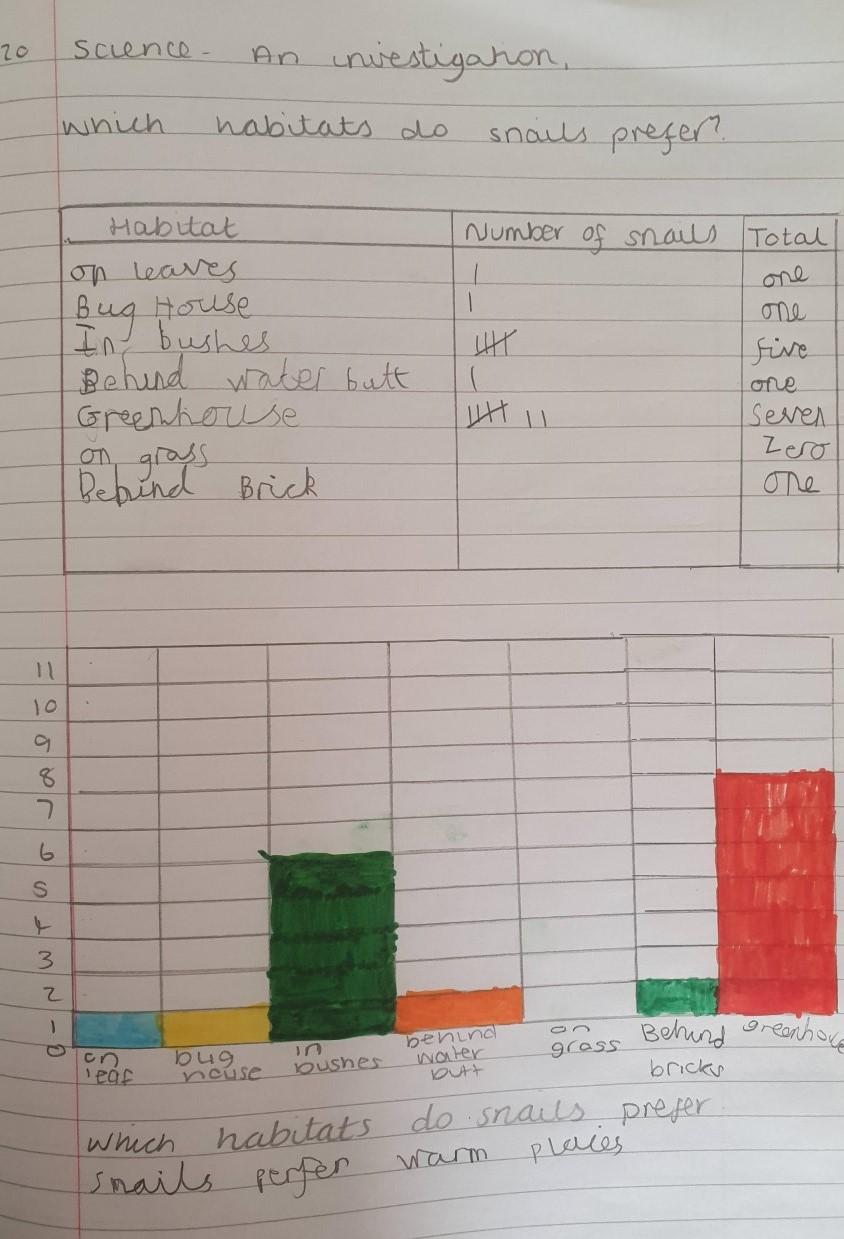 20 Science - An investigation.
Which habitats do snails prefer?
Habitat Number of snails Total
on leaves | one
Bug House | one
In bushes 卌 five
Behind water butt | one
Greenhouse 卌 || Seven
on grass Zero
Behind Brick One
11
10
9
8
7
6
5
4
3
2
1
0
on leaf
bug house
in bushes
behind water butt
on grass
Behind bricks
greenhouse
which habitats do snails prefer
snails perfer warm places